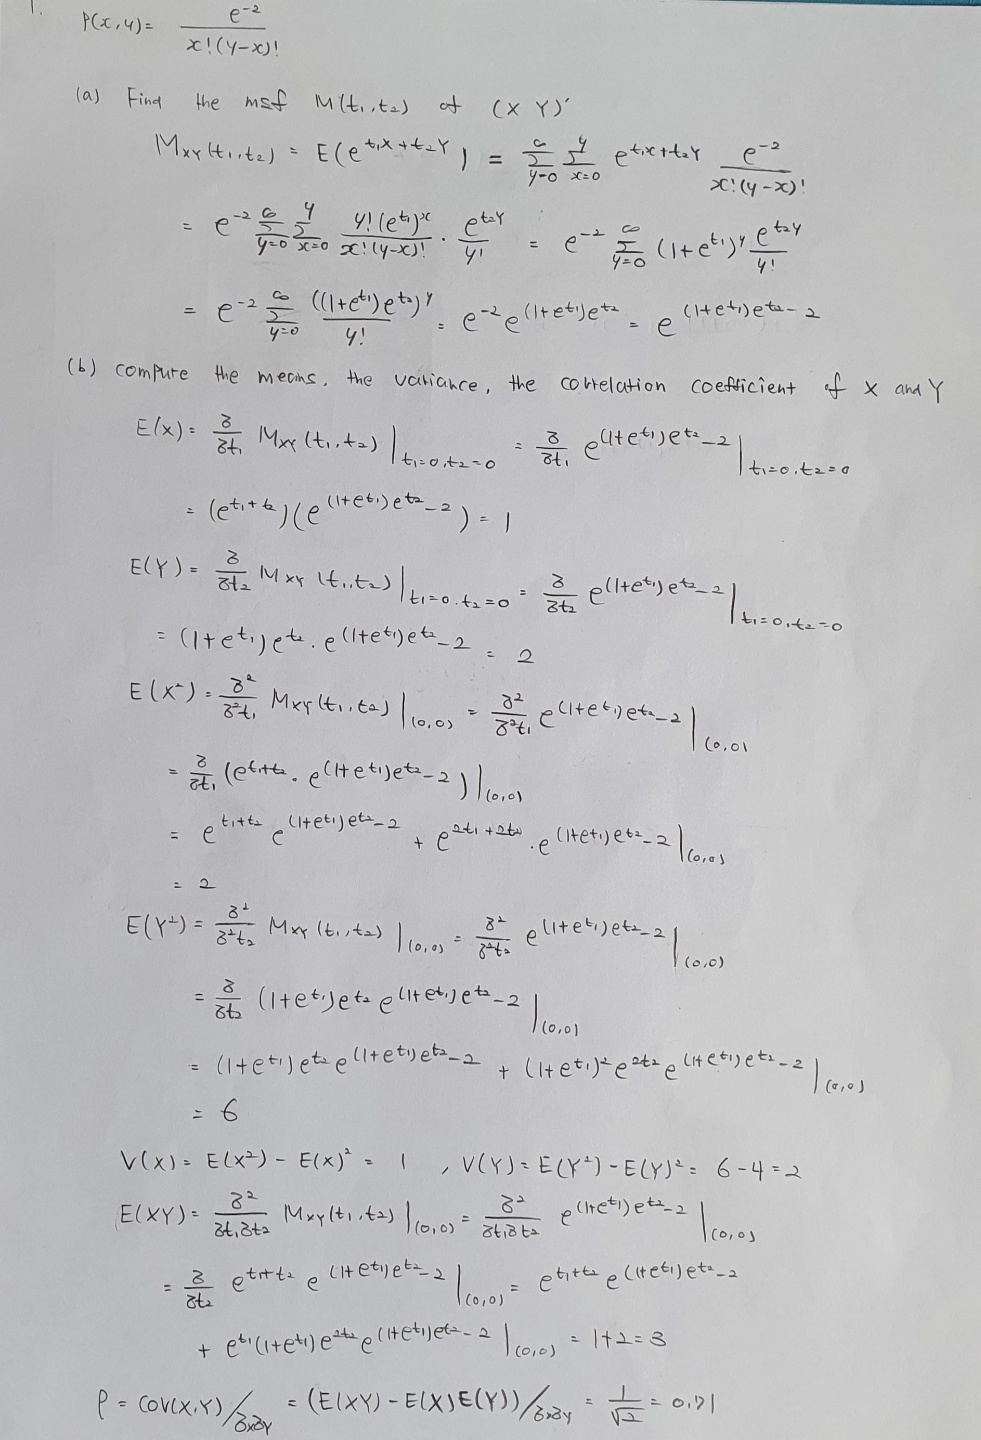 1.
P(x,y) = e^-2 / x!(y-x)!
(a) Find the mgf M(t₁,t₂) of (X Y)'
M_XY(t₁,t₂) = E(e^{t₁X+t₂Y}) = Σ_{y=0}^∞ Σ_{x=0}^y e^{t₁x+t₂y} e^-2 / x!(y-x)!
= e^-2 Σ_{y=0}^∞ Σ_{x=0}^y y!(e^{t₁})^x / x!(y-x)! · e^{t₂y} / y! = e^-2 Σ_{y=0}^∞ (1+e^{t₁})^y e^{t₂y} / y!
= e^-2 Σ_{y=0}^∞ ((1+e^{t₁})e^{t₂})^y / y! = e^-2 e^{(1+e^{t₁})e^{t₂}} = e^{(1+e^{t₁})e^{t₂}-2}
(b) compute the means, the variance, the correlation coefficient of X and Y
E(x) = ∂/∂t₁ M_XY(t₁,t₂) |_{t₁=0,t₂=0} = ∂/∂t₁ e^{(1+e^{t₁})e^{t₂}-2} |_{t₁=0,t₂=0}
= (e^{t₁+t₂})(e^{(1+e^{t₁})e^{t₂}-2}) = 1
E(Y) = ∂/∂t₂ M_XY(t₁,t₂) |_{t₁=0,t₂=0} = ∂/∂t₂ e^{(1+e^{t₁})e^{t₂}-2} |_{t₁=0,t₂=0}
= (1+e^{t₁})e^{t₂} · e^{(1+e^{t₁})e^{t₂}-2} = 2
E(X²) = ∂²/∂²t₁ M_XY(t₁,t₂) |_{(0,0)} = ∂²/∂²t₁ e^{(1+e^{t₁})e^{t₂}-2} |_{(0,0)}
= ∂/∂t₁ (e^{t₁+t₂} · e^{(1+e^{t₁})e^{t₂}-2}) |_{(0,0)}
= e^{t₁+t₂} e^{(1+e^{t₁})e^{t₂}-2} + e^{2t₁+2t₂} · e^{(1+e^{t₁})e^{t₂}-2} |_{(0,0)}
= 2
E(Y²) = ∂²/∂²t₂ M_XY(t₁,t₂) |_{(0,0)} = ∂²/∂²t₂ e^{(1+e^{t₁})e^{t₂}-2} |_{(0,0)}
= ∂/∂t₂ (1+e^{t₁})e^{t₂} e^{(1+e^{t₁})e^{t₂}-2} |_{(0,0)}
= (1+e^{t₁})e^{t₂} e^{(1+e^{t₁})e^{t₂}-2} + (1+e^{t₁})² e^{2t₂} e^{(1+e^{t₁})e^{t₂}-2} |_{(0,0)}
= 6
V(X) = E(X²) - E(X)² = 1 , V(Y) = E(Y²) - E(Y)² = 6-4 = 2
E(XY) = ∂²/∂t₁∂t₂ M_XY(t₁,t₂) |_{(0,0)} = ∂²/∂t₁∂t₂ e^{(1+e^{t₁})e^{t₂}-2} |_{(0,0)}
= ∂/∂t₂ e^{t₁+t₂} e^{(1+e^{t₁})e^{t₂}-2} |_{(0,0)} = e^{t₁+t₂} e^{(1+e^{t₁})e^{t₂}-2}
+ e^{t₁}(1+e^{t₁})e^{2t₂} e^{(1+e^{t₁})e^{t₂}-2} |_{(0,0)} = 1+2 = 3
ρ = COV(X,Y)/∂x∂y = (E(XY) - E(X)E(Y))/∂x∂y = 1/√2 = 0.71